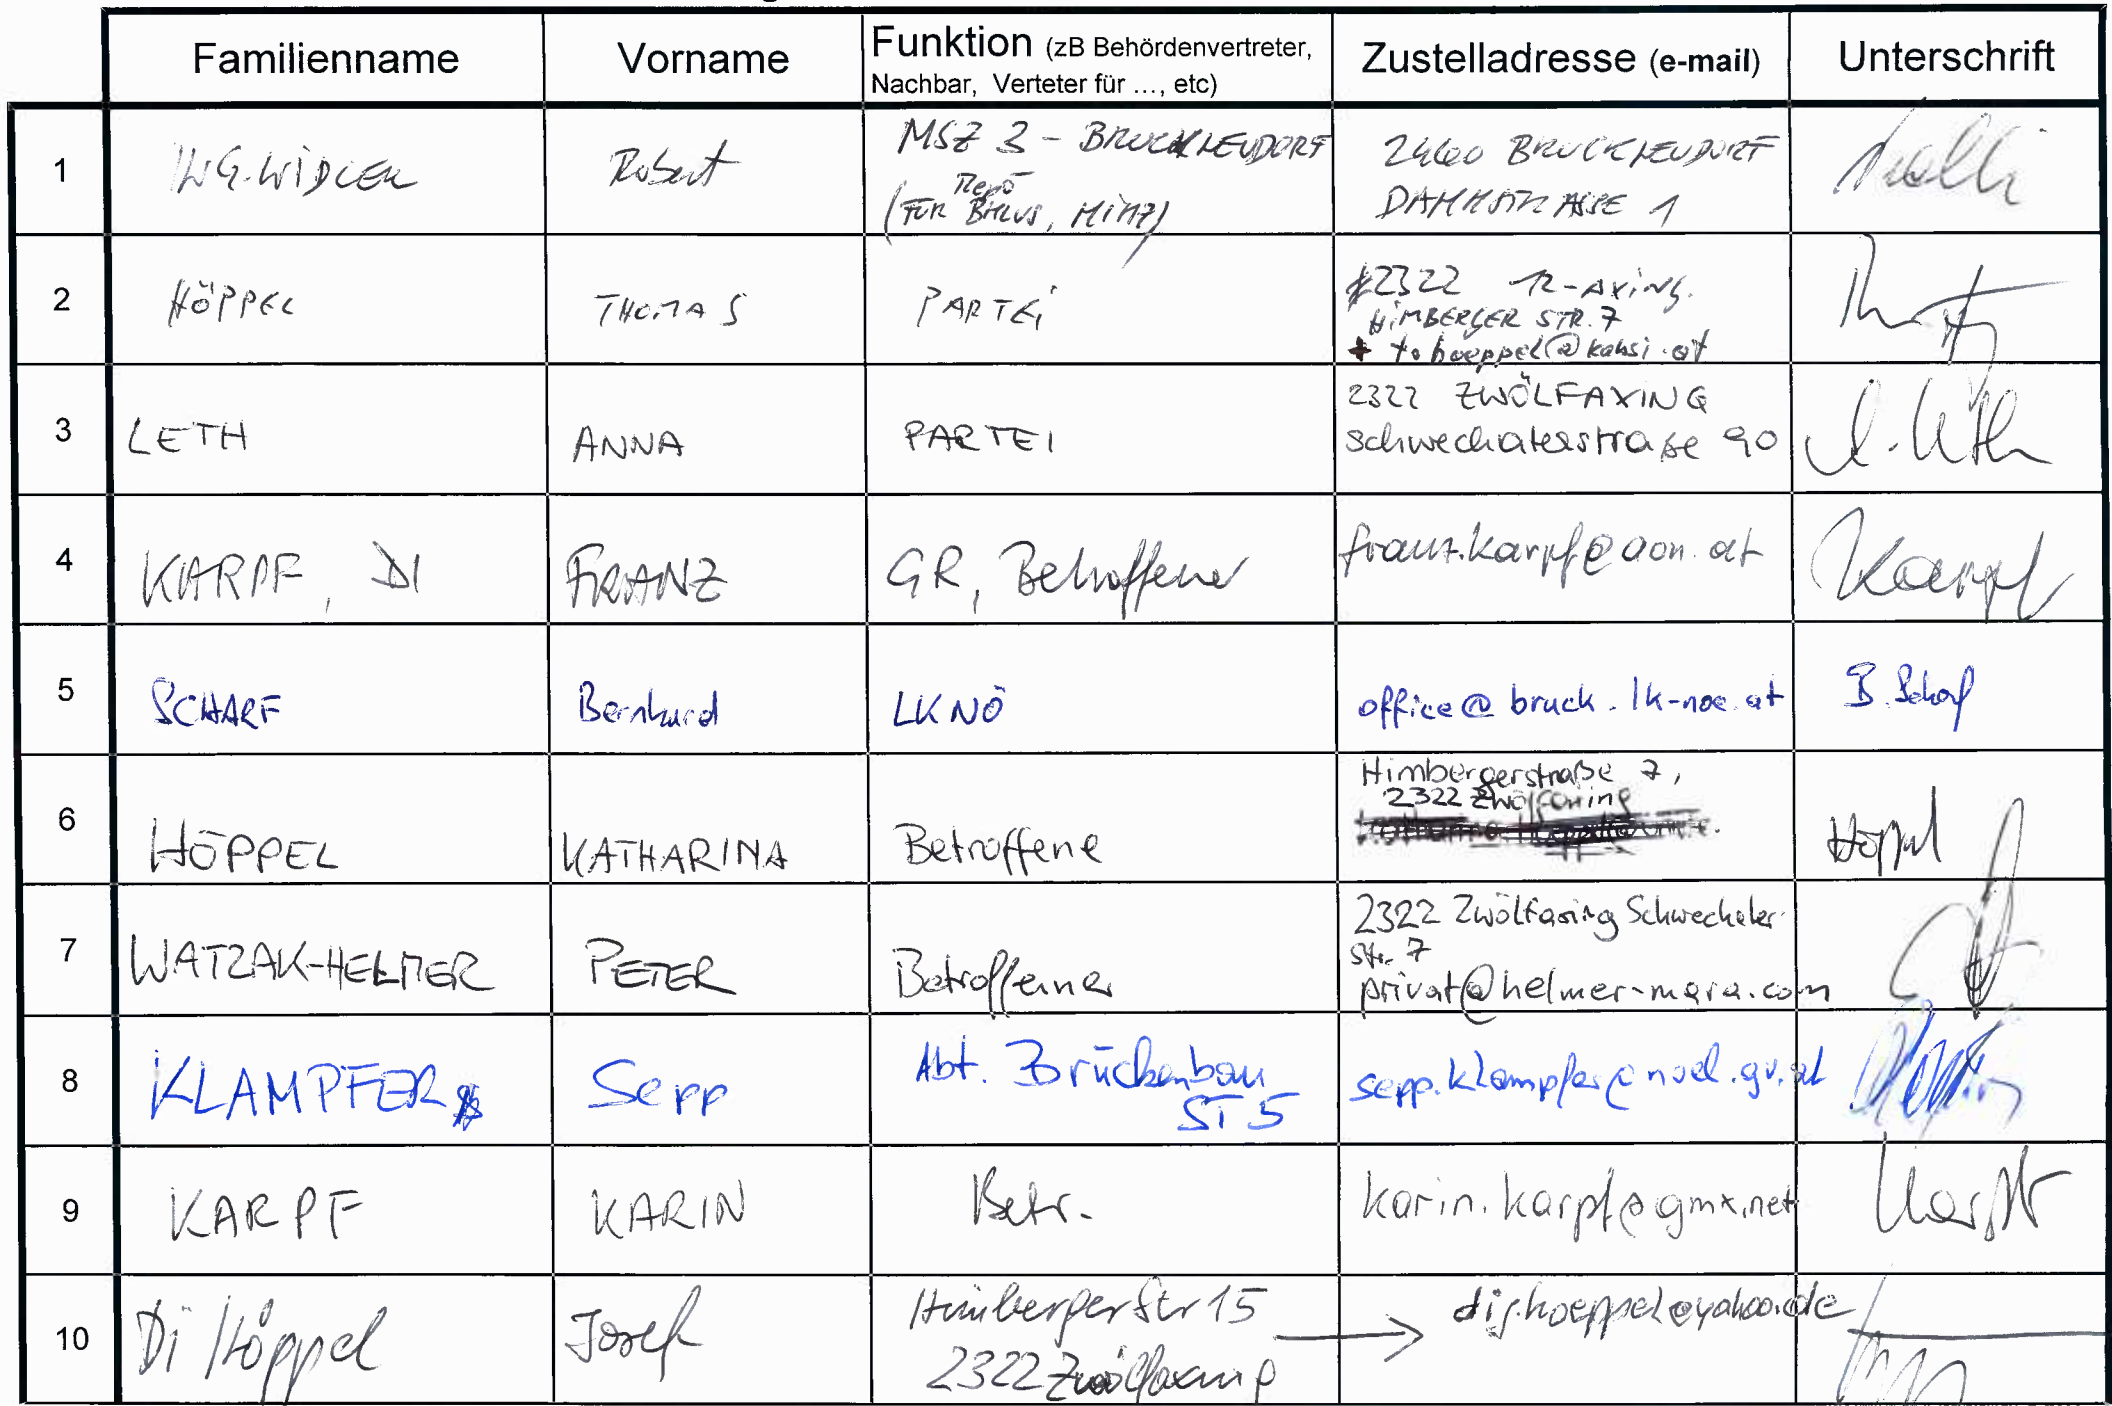 Familienname Vorname Funktion (zB Behördenvertreter, Nachbar, Verteter für ..., etc) Zustelladresse (e-mail) Unterschrift
1 Robert MSZ 3 - BRUCKNEUDORF 2460 BRUCKNEUDORF
(FÜR BMLVS, DAMMSTRASSE 1
2 HÖPPEL THOMAS PARTEI 2322 12-AXING.
HIMBERGER STR. 7
+ to.hoeppel@kabsi.at
3 LETH ANNA PARTEI 2322 ZWÖLFAXING
Schwechaterstraße 90 A. Leth
4 KARPF, DI FRANZ GR, Betroffener franz.karpf@aon.at Karpf
5 SCHARF Bernhard LK NÖ office@bruck.lk-noe.at B. Scharf
6 HÖPPEL KATHARINA Betroffene Himbergerstraße 7,
2322 Zwölfaxing
Höppel
7 WATZAK-HELMER PETER Betroffener 2322 Zwölfaxing Schwechater
Str. 7
privat@helmer-mara.com
8 KLAMPFER Sepp Abt. Brückenbau sepp.klampfer@noel.gv.at
ST 5
9 KARPF KARIN Betr. karin.karpf@gmx.net
10 Di Höppel Josef Himberger Str 15 dij.hoeppel@yahoo.de
2322 Zwölfaxing